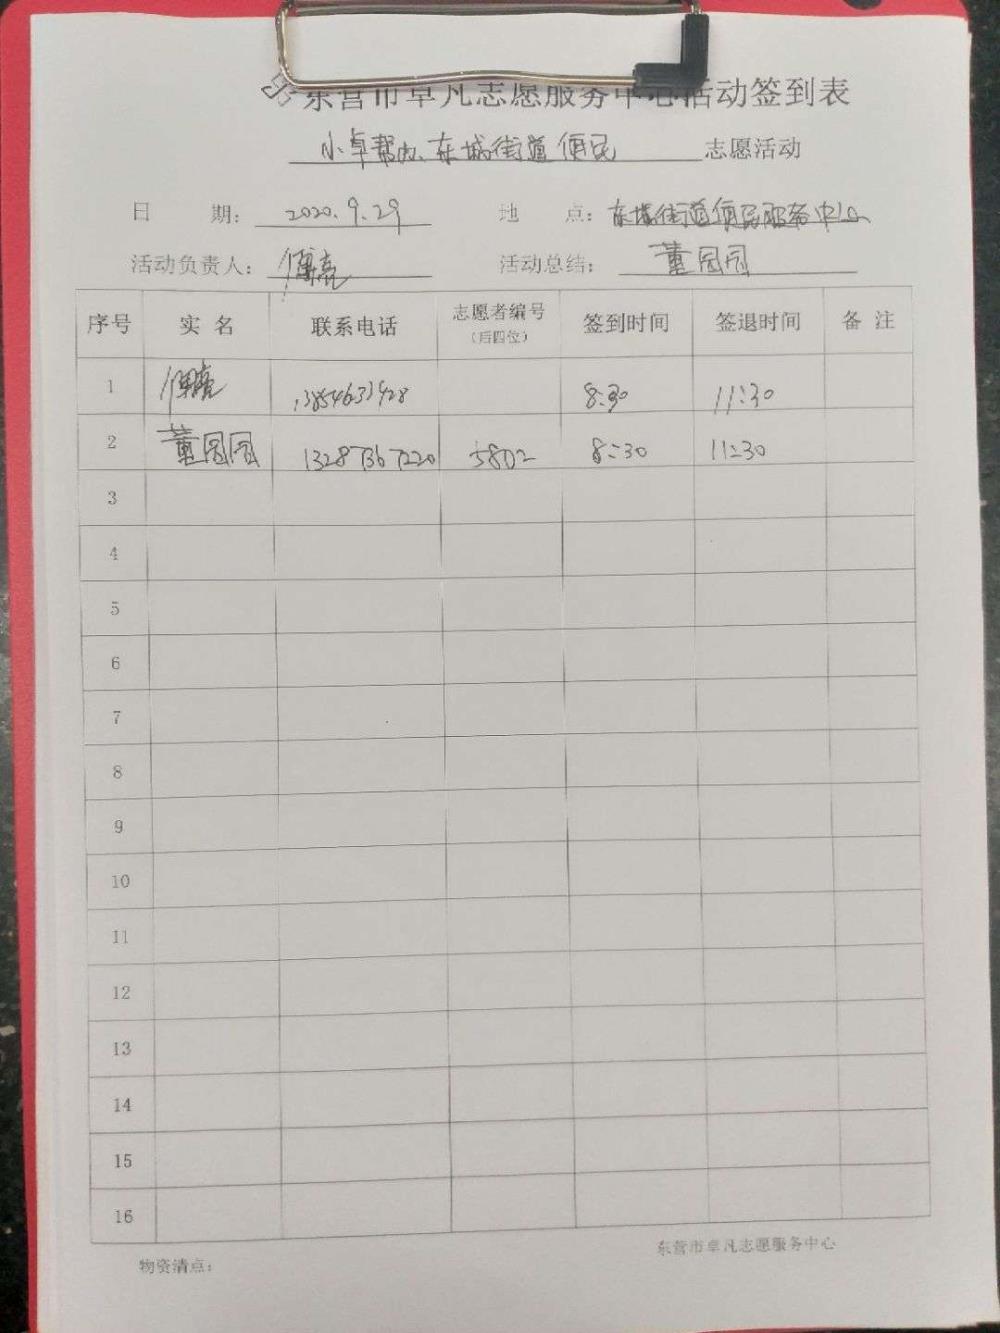 东营市卓凡志愿服务中心活动签到表
小卓帮办、东城街道便民 志愿活动
日 期: 2020.9.29 地 点: 东城街道便民服务中心
活动负责人: 傅亮 活动总结: 董园园
序号 实 名 联系电话 志愿者编号(后四位) 签到时间 签退时间 备 注
1 傅亮 13854633928 8:30 11:30
2 董园园 13287367220 5802 8:30 11:30
3
4
5
6
7
8
9
10
11
12
13
14
15
16
物资清点: 东营市卓凡志愿服务中心